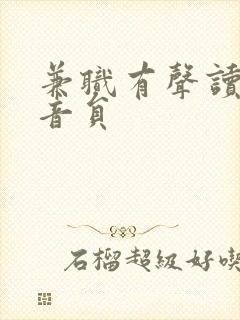 兼職有聲讀
音員
石榴超級好喫